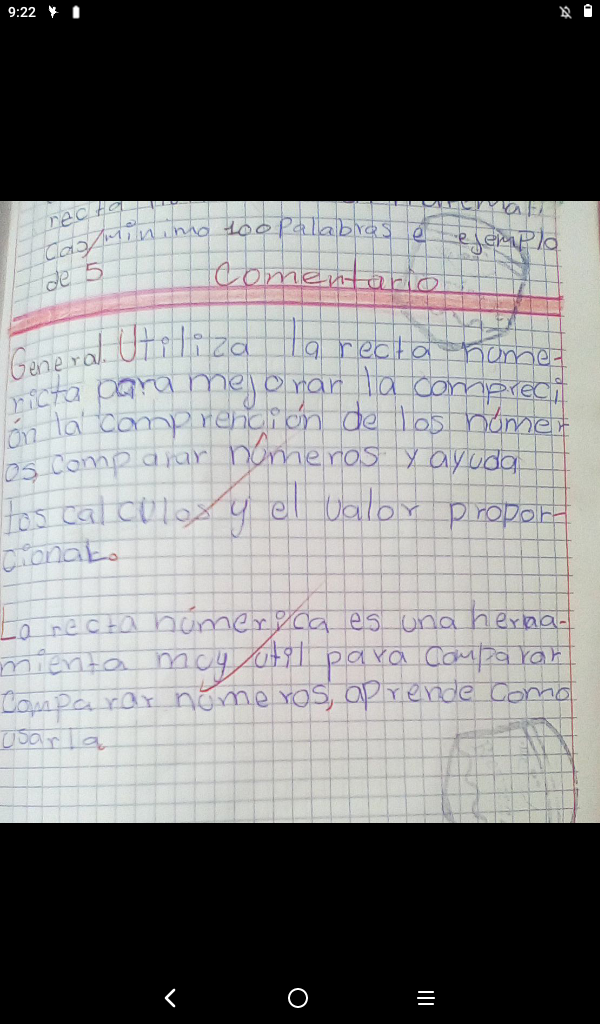 9:22
recta
cas/mínimo 100 palabras e ejemplo
de 5
Comentario
General. Utiliza la recta núme-
ricta para mejorar la compreci
ón la comprención de los númer
os, comparar números y ayuda
los calculos y el valor propor-
cional.
La recta númerica es una herra-
mienta muy util para comparar
comparar números, aprende como
usarla